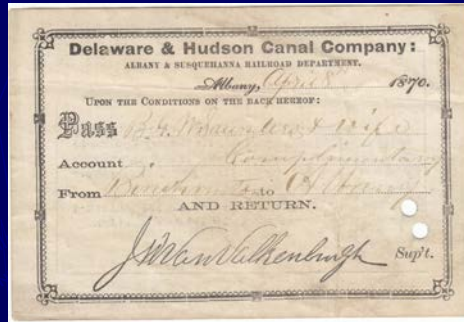 Delaware & Hudson Canal Company:
ALBANY & SUSQUEHANNA RAILROAD DEPARTMENT.
Albany, April 8 1870.
UPON THE CONDITIONS ON THE BACK HEREOF:
Pass & wife
Account Complimentary
From Binghamton to Albany
AND RETURN.
J W Van Valkenburgh Sup't.